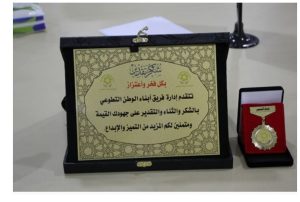 شكر وتقدير
بكل فخر واعتزاز
تتقدم إدارة فريق أبناء الوطن التطوعي
بالشكر والثناء والتقدير على جهودك القيمة
ومتمنين لكم المزيد من التميز والإبداع